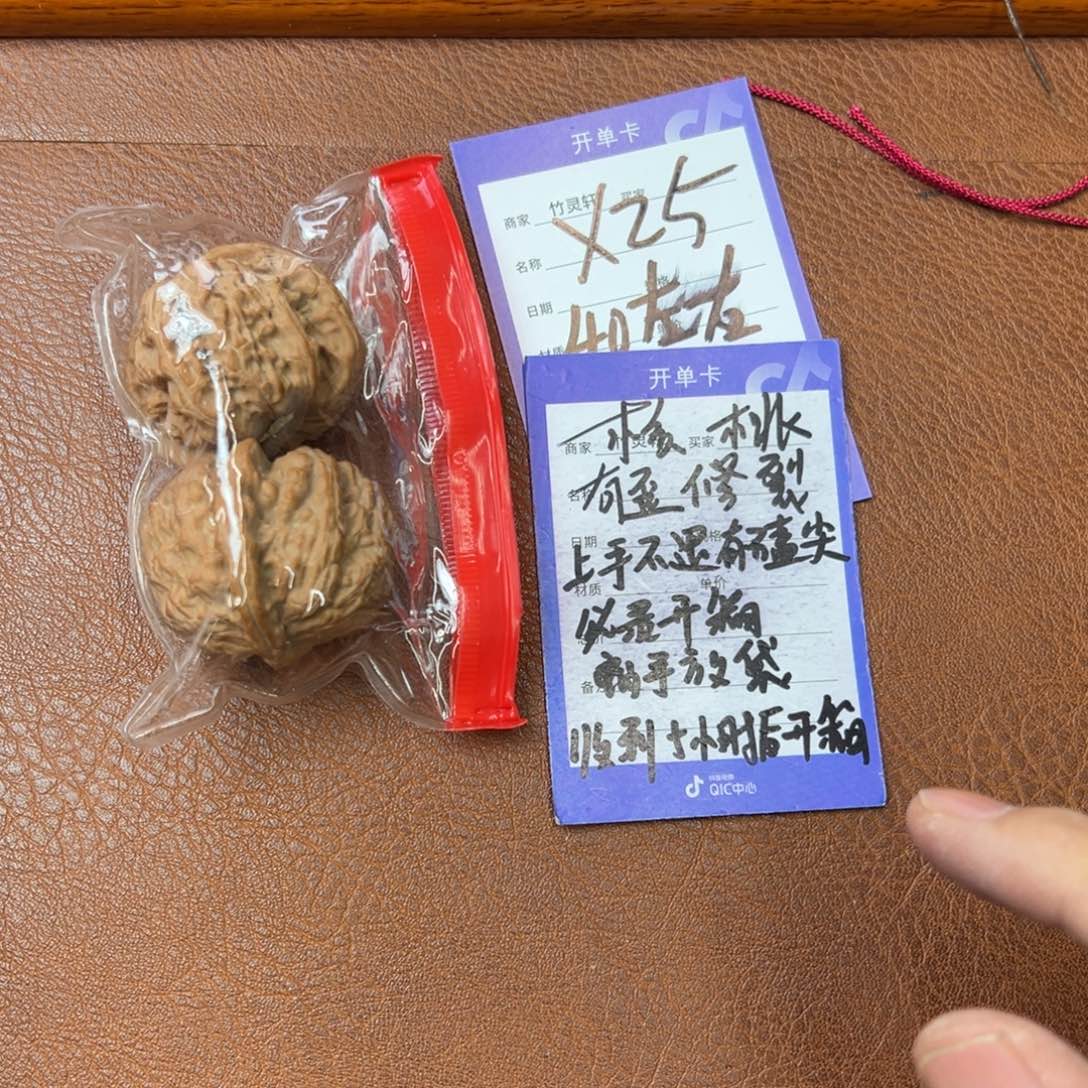 开单卡
商家 竹灵轩 买家
X25
名称
日期
40左右
材质
开单卡
核桃
商家 买家
有歪修裂
名称
日期
上手不退有磕尖
材质 单价
必录开箱
勤手放袋
备注
收到5小时后开箱
QIC中心